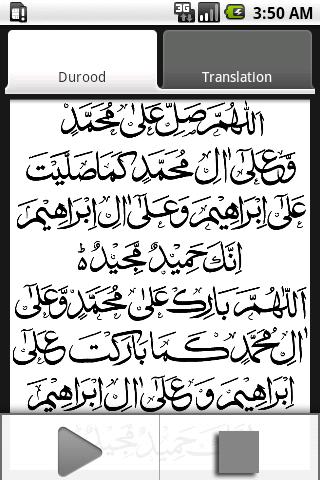 3G
3:50 AM
Durood
Translation
اَللّٰهُمَّ صَلِّ عَلٰى مُحَمَّدٍ
وَّعَلٰٓى اٰلِ مُحَمَّدٍ كَمَا صَلَّيْتَ
عَلٰٓى اِبْرَاهِيْمَ وَعَلٰٓى اٰلِ اِبْرَاهِيْمَ
اِنَّكَ حَمِيْدٌ مَّجِيْدٌ ؕ
اَللّٰهُمَّ بَارِكْ عَلٰى مُحَمَّدٍ وَّعَلٰٓى
اٰلِ مُحَمَّدٍ كَمَا بَارَكْتَ عَلٰٓى
اِبْرَاهِيْمَ وَ عَلٰٓى اٰلِ اِبْرَاهِيْمَ
اِنَّكَ حَمِيْدٌ مَّجِيْدٌ